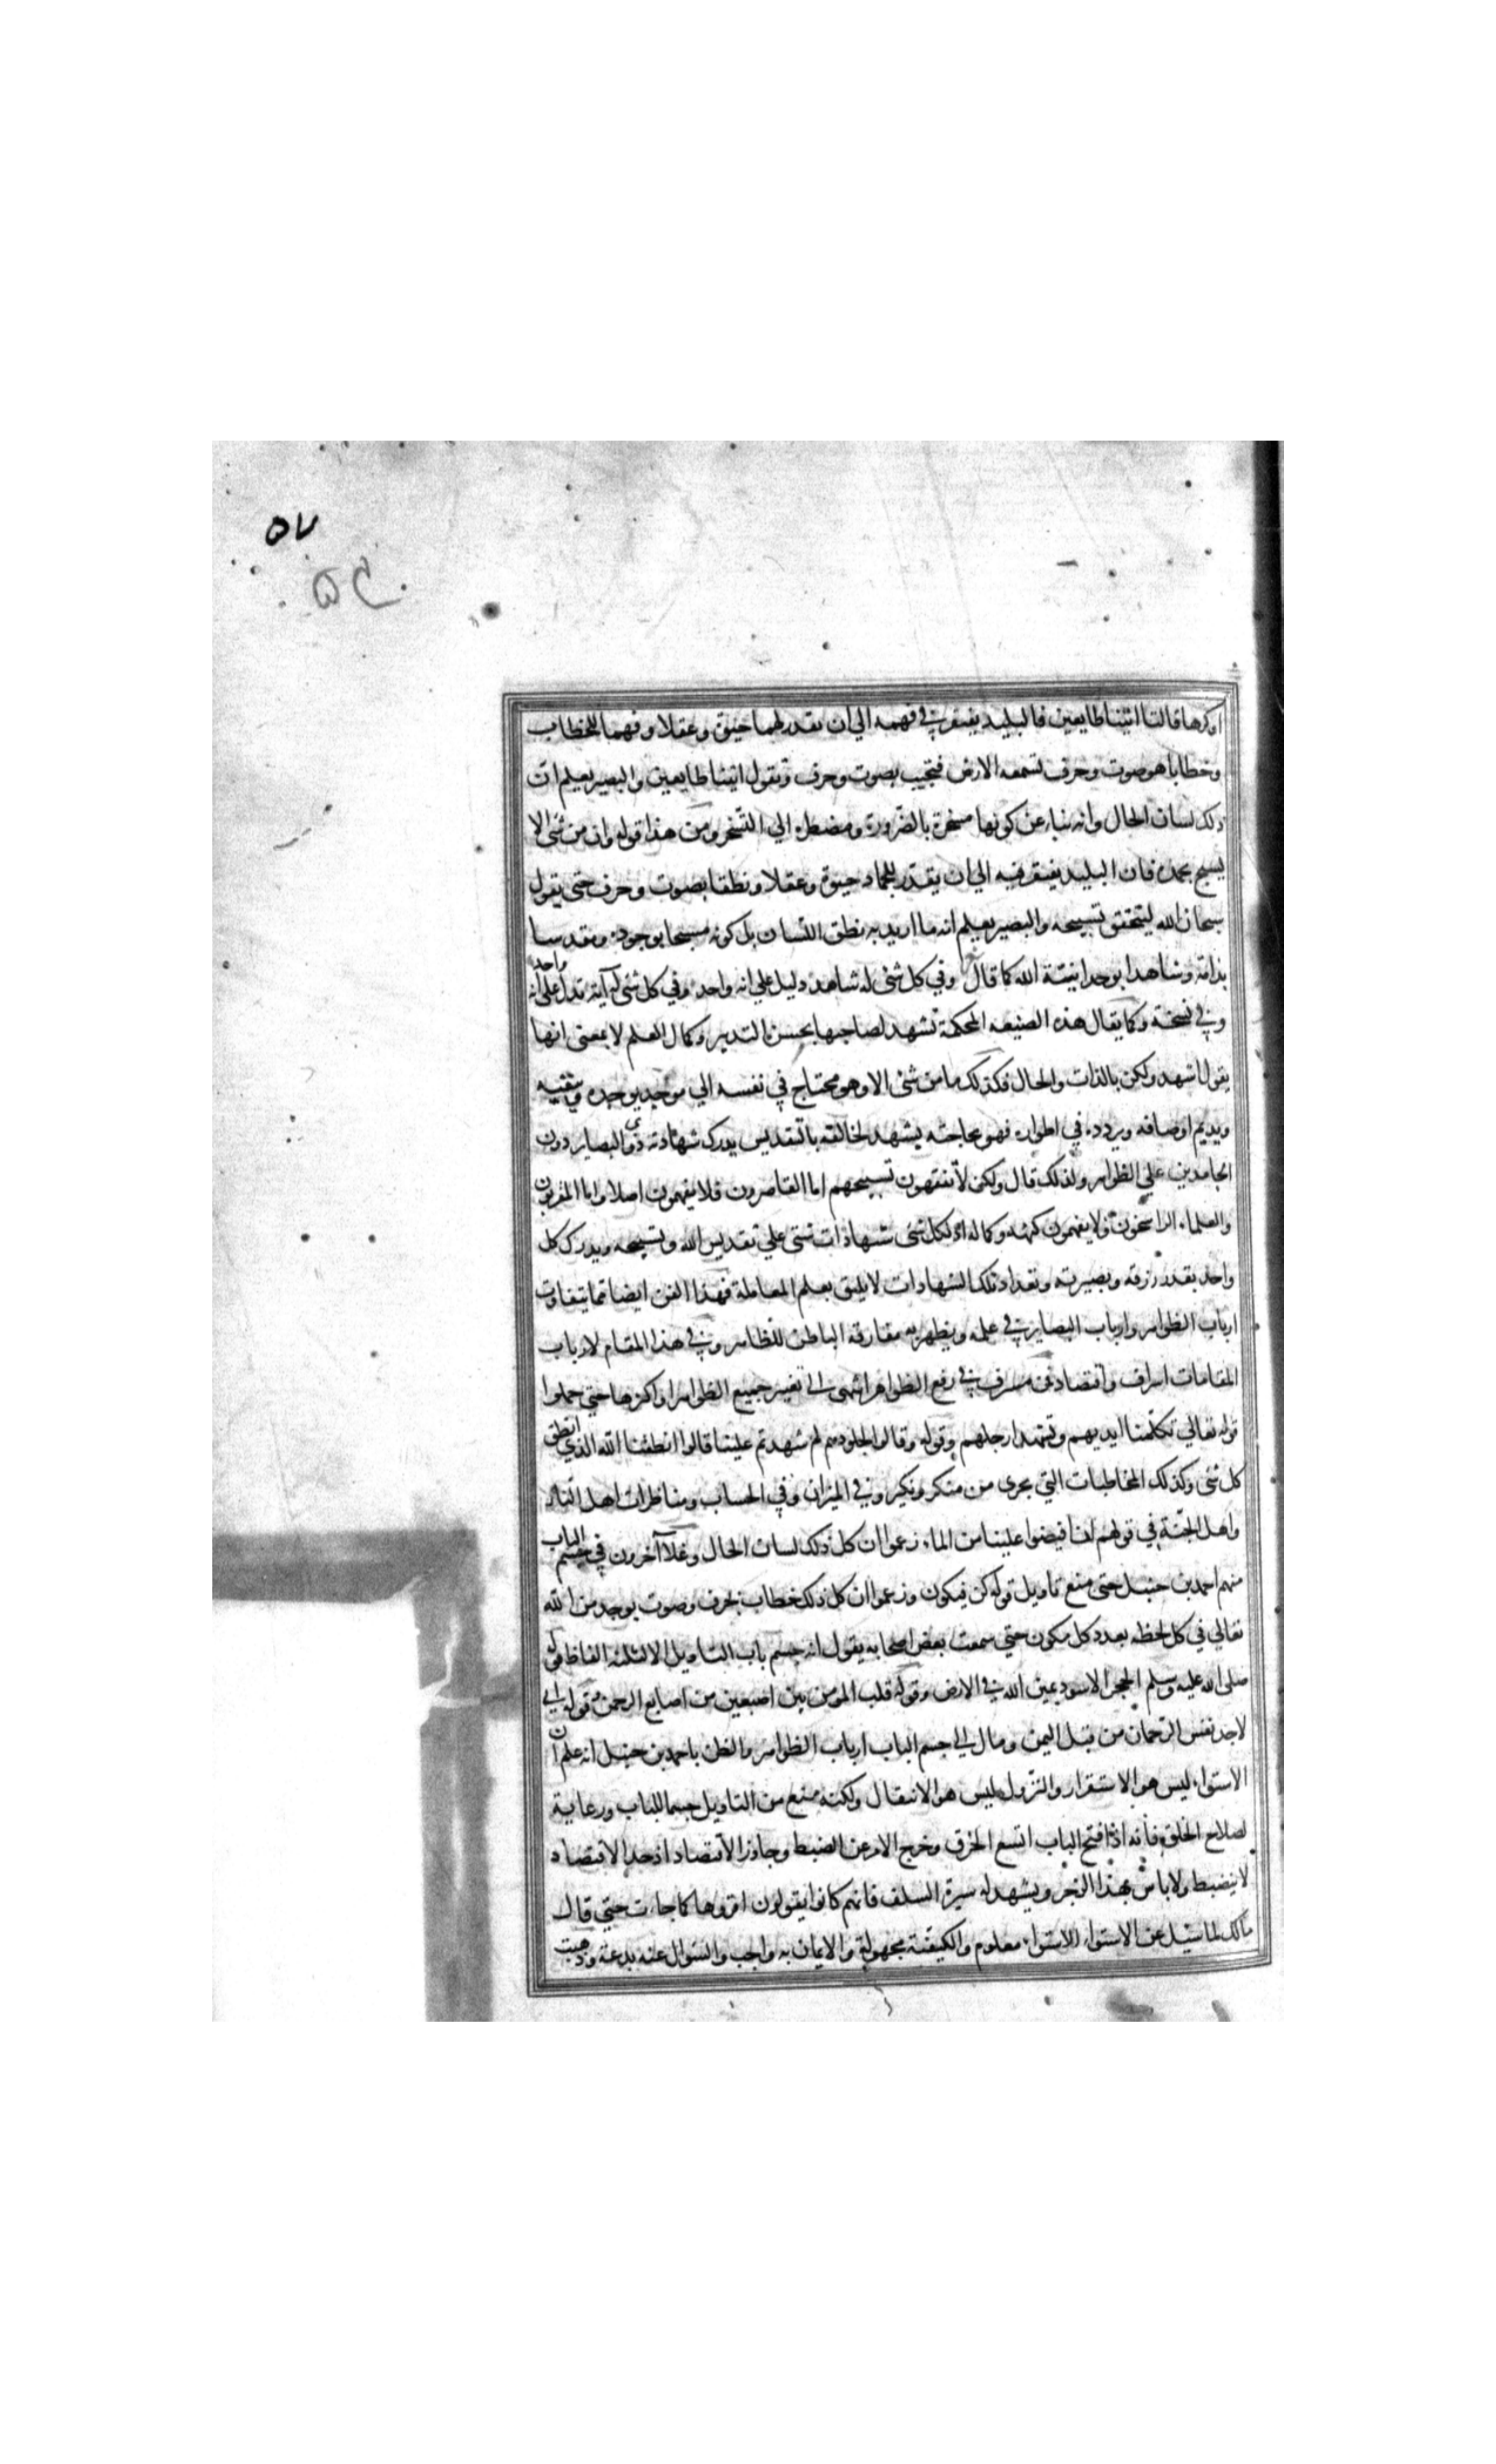 ٥٧
٥٤
او كرها قالتا اتينا طايعين فالبليد يفتقر في فهمه الي ان يقدر لهما حيوة وعقلا وفهما للخطاب
وخطابا هو صوت وحرف تسمعه الارض فتجيب بصوت وحرف وتقول اتينا طايعين والبصير يعلم ان
ذلك لسان الحال وانه نباء عن كونها مسخرة بالضرورة ومضطرة الي التسخر ومن هذا قوله وان من شئ الا
يسبح بحمده فان البليد يفتقر فيه الي ان يقدر للجماد حيوة وعقلا ونطقا بصوت وحرف حتى يقول
سبحان الله ليتحقق تسبيحه والبصير يعلم انه ما اريد به نطق اللسان بل كونه مسبحا بوجوده ومقدسا
بذاته وشاهدا بوحدانيتة الله كما قال وفي كل شئ له شاهد دليل علي انه واحد وفي كل شئ له آية تدل علي انه واحد
وفي نسخة وكما يقال هذه الصنيعه المحكمة تشهد لصاحبها بحسن التدبير وكمال العلم لا بمعنى انها
يقول اشهد ولكن بالذات والحال فكذلك ما من شئ الا وهو محتاج في نفسه الي موجد يوجده ويبقيه
ويديم اوصافه ويردده في اطواره فهو بحاجته يشهد لخالقه بالتقديس يدرك شهادته ذوي البصاير دون
الجامدين علي الظواهر ولذلك قال ولكن لا تفقهون تسبيحهم اما القاصرون فلا يفهمون اصلا واما المقربون
والعلماء الراسخون ولا يفهمون كنهه وكماله اذ لكل شئ شهادات شتى علي تقديس الله وتسبيحه ويدرك كل
واحد بقدر رزقه وبصيرته وتعداد تلك الشهادات لا يليق بعلم المعاملة فهذا الفن ايضا مما يتفاوت
ارباب الظواهر وارباب البصاير في علمه ويظهر به مفارقه الباطن للظاهر وفي هذا المقام لارباب
المقامات اسراف واقتصاد فمن مسرف في رفع الظواهر انتهى الى تغيير جميع الظواهر او اكثرها حتي حملوا
قوله تعالي تكلمنا ايديهم وتشهد ارجلهم وقوله وقالوا لجلودهم لم شهدتم علينا قالوا انطقنا الله الذي انطق
كل شئ وكذلك المخاطبات التي يجرى من منكر ونكير وفي الميزان وفي الحساب ومناظرات اهل النار
واهل الجنة في قولهم ان افيضوا علينا من الماء زعموا ان كل ذلك لسان الحال وغلا آخرون في حسم الباب
منهم احمد بن حنبل حتى منع تاويل قوله كن فيكون وزعموا ان كل ذلك خطاب بحرف وصوت يوجد من الله
تعالي في كل لحظه بعدد كل مكون حتي سمعت بعض اصحابه يقول انه حسم باب التاويل الا لثلثه الفاظ قوله
صلى الله عليه وسلم الحجر الاسود يمين الله في الارض وقوله قلب المومن بين اصبعين من اصابع الرحمن وقوله اني
لاجد نفس الرحمان من قبل اليمن ومال الي حسم الباب ارباب الظواهر والظن باحمد بن حنبل انه علم ان
الاستواء ليس هو الاستقرار والنزول ليس هو الانتقال ولكنه منع من التاويل حسما للباب ورعاية
لصلاح الخلق فانه اذا فتح الباب اتسع الخرق وخرج الامر عن الضبط وجاوز الاقتصاد اذ حد الاقتصاد
لا ينضبط ولا باس بهذا الزجر ويشهد له سيرة السلف فانهم كانوا يقولون امروها كما جاءت حتي قال
مالك لما سئل عن الاستواء الاستواء معلوم والكيفية مجهولة والايمان به واجب والسوال عنه بدعة وذهبت